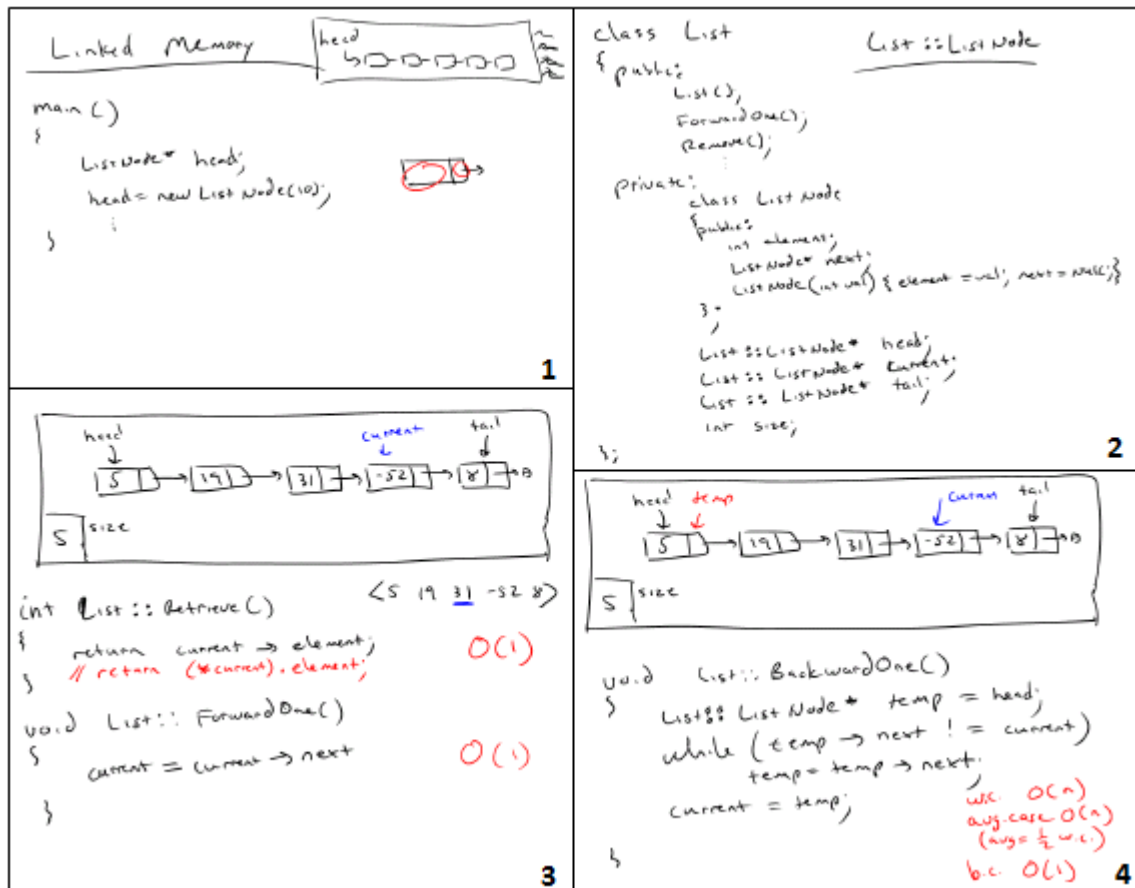 Linked Memory
head
main()
{
ListNode* head;
head = new ListNode(10);
⋮
}
1
class List
List::ListNode
{ public:
List();
ForwardOne();
Remove();
⋮
private:
class ListNode
{
public:
int element;
ListNode* next;
ListNode(int val) { element = val; next = NULL; }
};
List::ListNode* head;
List::ListNode* current;
List::ListNode* tail;
int size;
};
2
head current tail
5 19 31 -52 8
5 size
int List::Retrieve() <5 19 31 -52 8>
{
return current → element; O(1)
// return (*current).element;
}
void List::ForwardOne()
{
current = current → next O(1)
}
3
head temp tail
5 19 31 -52 8
5 size
void List::BackwardOne()
{
List::ListNode* temp = head;
while (temp → next != current)
temp = temp → next;
current = temp;
w.c. O(n)
avg.case O(n)
(avg = 1/2 w.c.)
b.c. O(1)
}
4